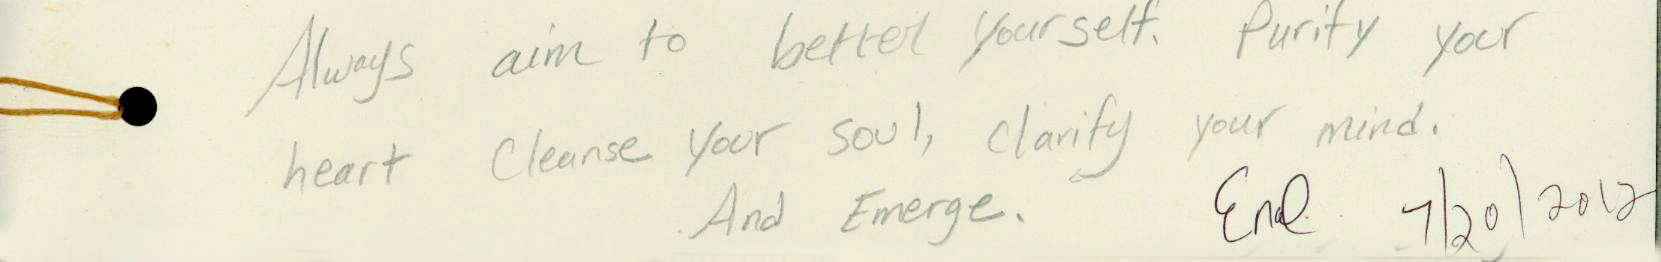 Always aim to better yourself. Purify your
heart Cleanse your soul, clarify your mind.
And Emerge.
End 7/20/2012